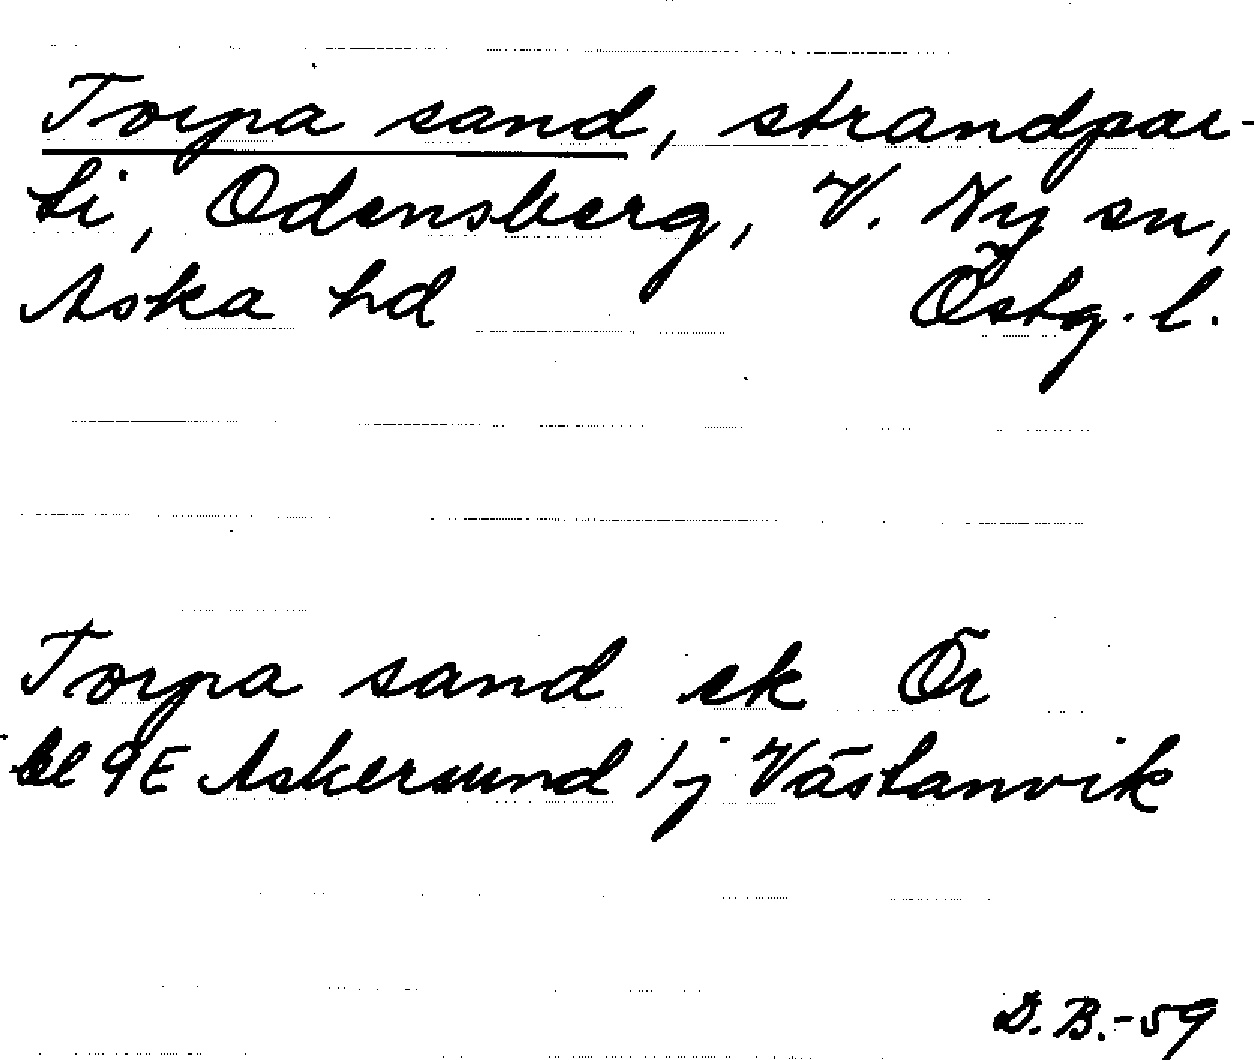 Torpa sand, strandpar-
ti, Odensberg, V. Ny sn,
Aska hd Östg. l.
Torpa sand ek Ör
bl 9E Askersund 1j Västanvik
D.B.-59